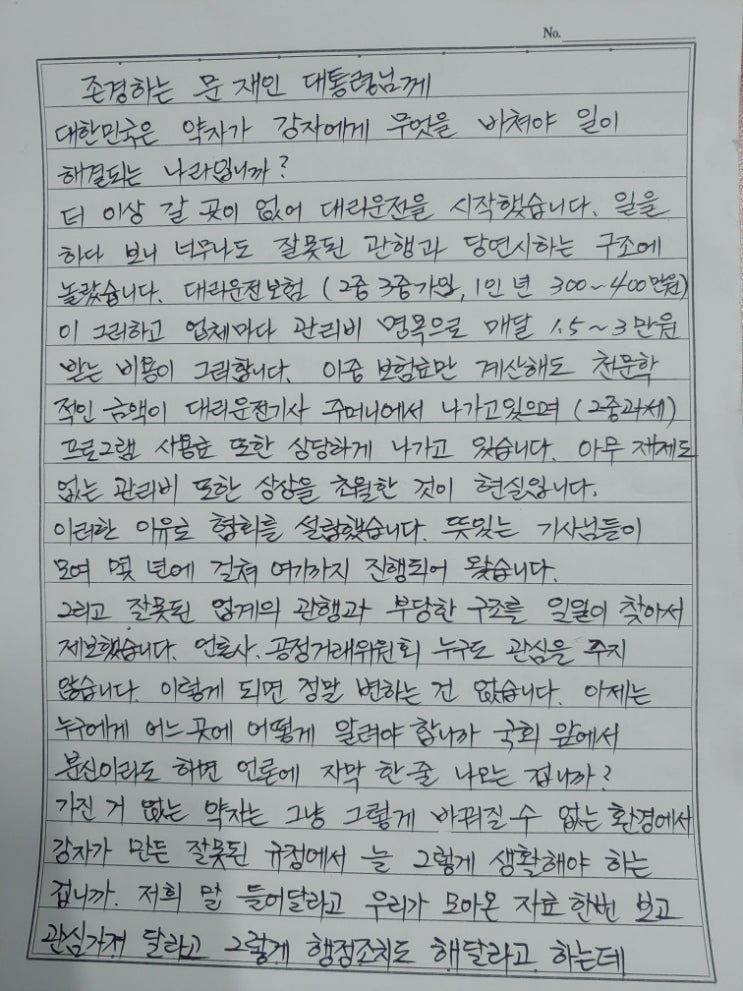 No.
존경하는 문 재인 대통령님께
대한민국은 약자가 강자에게 무엇을 바쳐야 일이
해결되는 나라입니까?
더 이상 갈 곳이 없어 대리운전을 시작했습니다. 일을
하다 보니 너무나도 잘못된 관행과 당연시하는 구조에
놀랐습니다. 대리운전보험 (2중 3중가입, 1인 년 300~400만원)
이 그러하고 업체마다 관리비 명목으로 매달 1.5~3만원
받는 비용이 그러합니다. 이중 보험료만 계산해도 천문학
적인 금액이 대리운전기사 주머니에서 나가고있으며 (2중과세)
프로그램 사용료 또한 상당하게 나가고 있습니다. 아무 제제도
없는 관리비 또한 상상을 초월한 것이 현실입니다.
이러한 이유로 협회를 설립했습니다. 뜻있는 기사님들이
모여 몇 년에 걸쳐 여기까지 진행되어 왔습니다.
그리고 잘못된 업계의 관행과 부당한 구조를 일일이 찾아서
제보했습니다. 언론사. 공정거래위원회 누구도 관심을 주지
않습니다. 이렇게 되면 정말 변하는 건 없습니다. 이제는
누구에게 어느 곳에 어떻게 알려야 합니까 국회 앞에서
분신이라도 하면 언론에 자막 한줄 나오는 겁니까?
가진 거 없는 약자는 그냥 그렇게 바뀌질 수 없는 환경에서
강자가 만든 잘못된 규정에서 늘 그렇게 생활해야 하는
겁니까. 저희 말 들어달라고 우리가 모아온 자료 한번 보고
관심가져 달라고 그렇게 행정조치도 해달라고 하는데